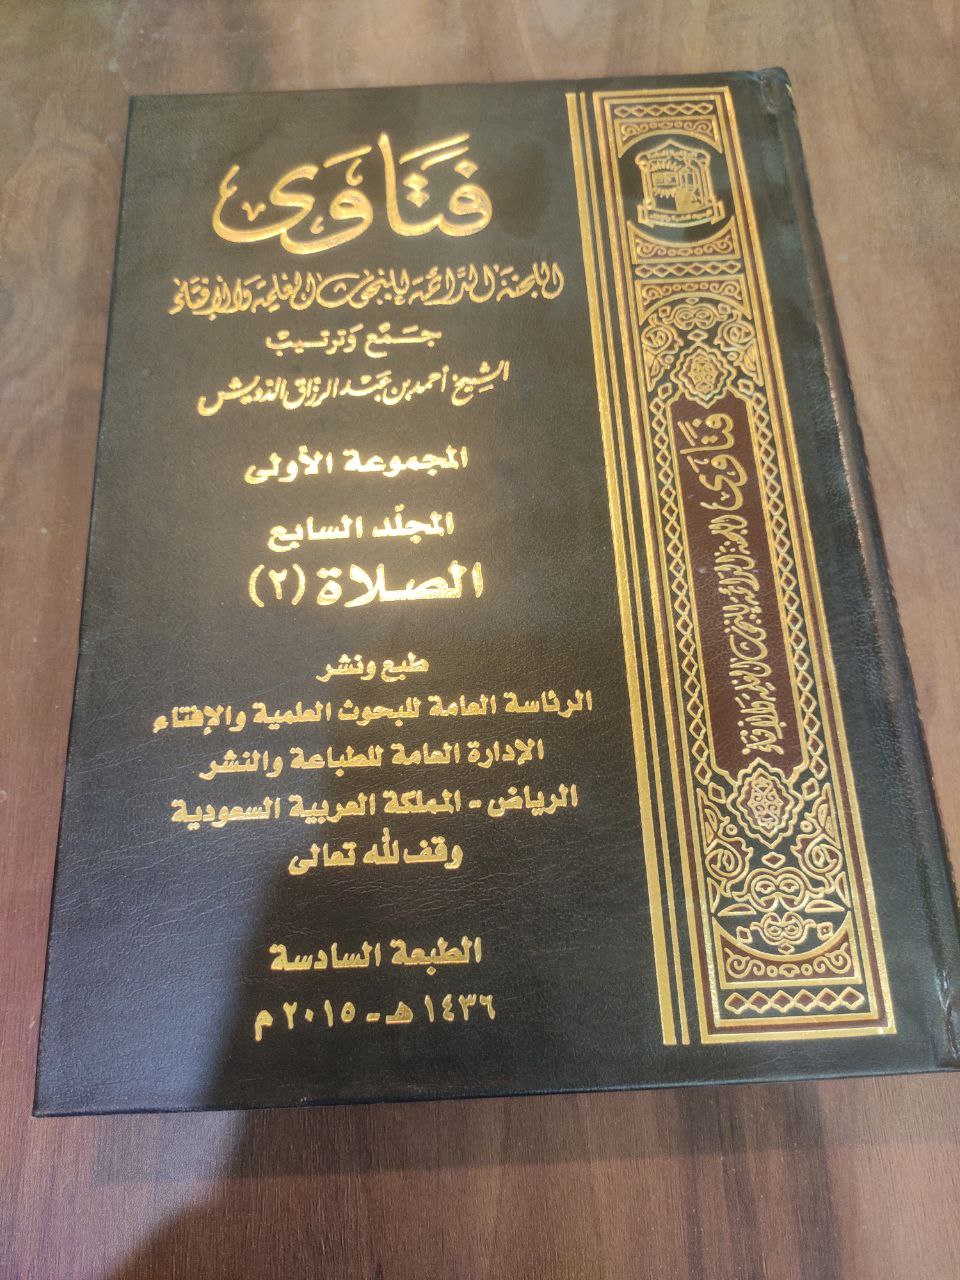 فَتَاوَى
اللجنة الدائمة للبحوث العلمية والإفتاء
جمع وترتيب
الشيخ أحمد بن عبد الرزاق الدويش
المجموعة الأولى
المجلّد السابع
الصلاة (٢)
طبع ونشر
الرئاسة العامة للبحوث العلمية والإفتاء
الإدارة العامة للطباعة والنشر
الرياض - المملكة العربية السعودية
وقف لله تعالى
الطبعة السادسة
١٤٣٦ هـ - ٢٠١٥ م
فَتَاوَى اللجنة الدائمة للبحوث العلمية والإفتاء